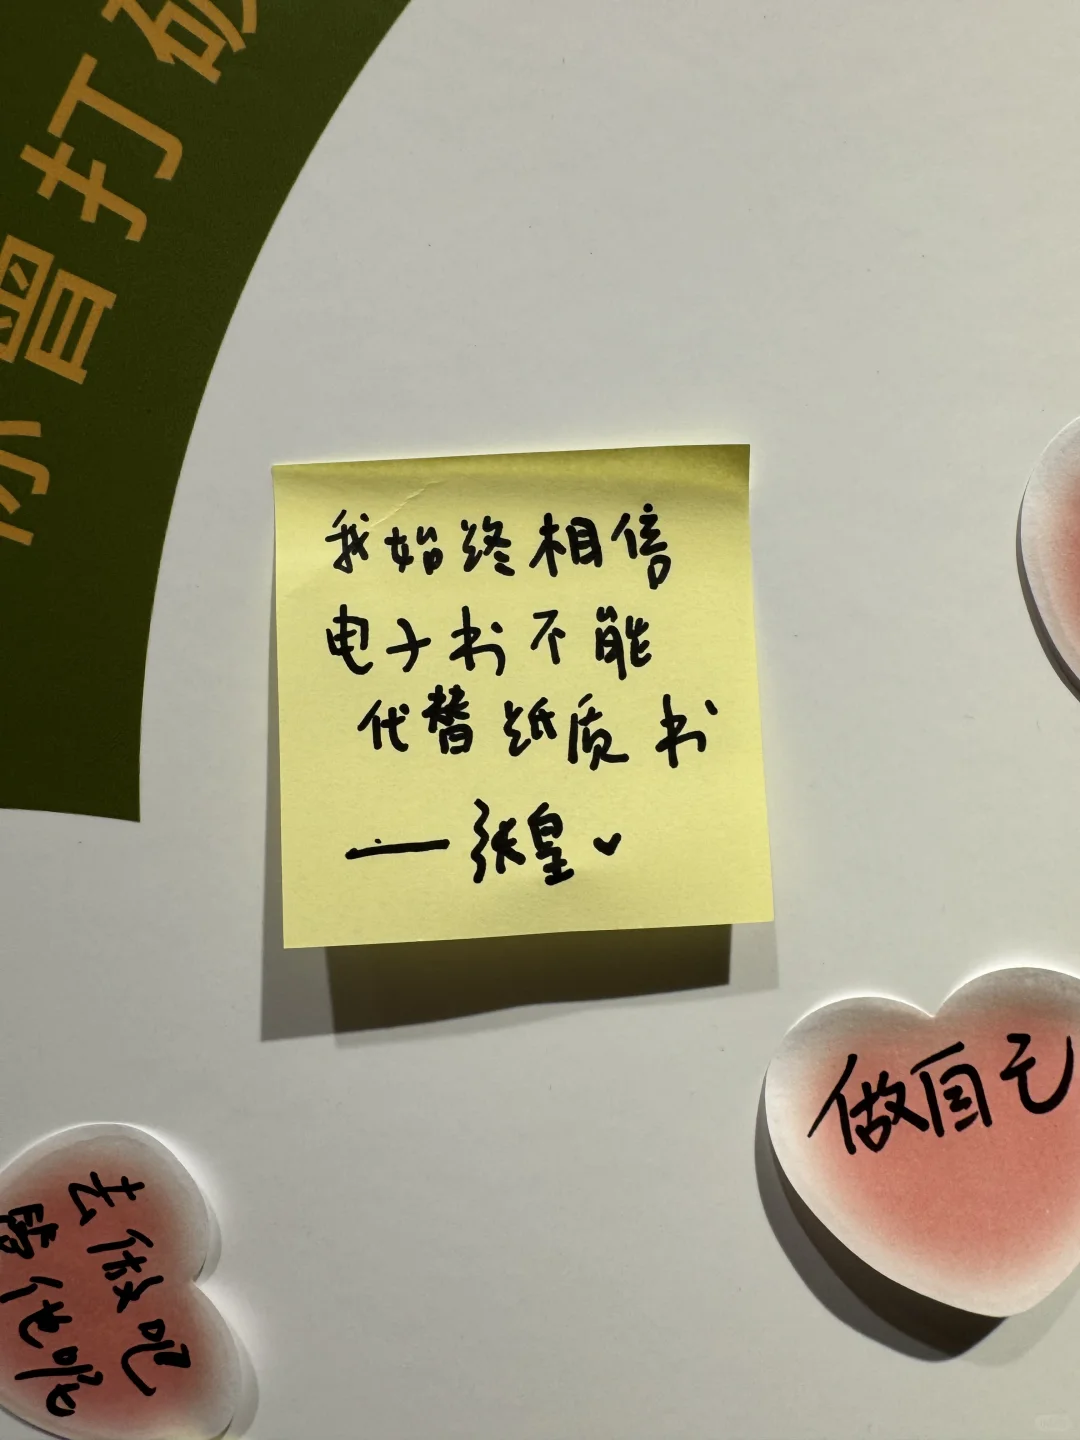 你曾打破
我始终相信
电子书不能
代替纸质书
——张皇
做自己
去做吧
管他呢